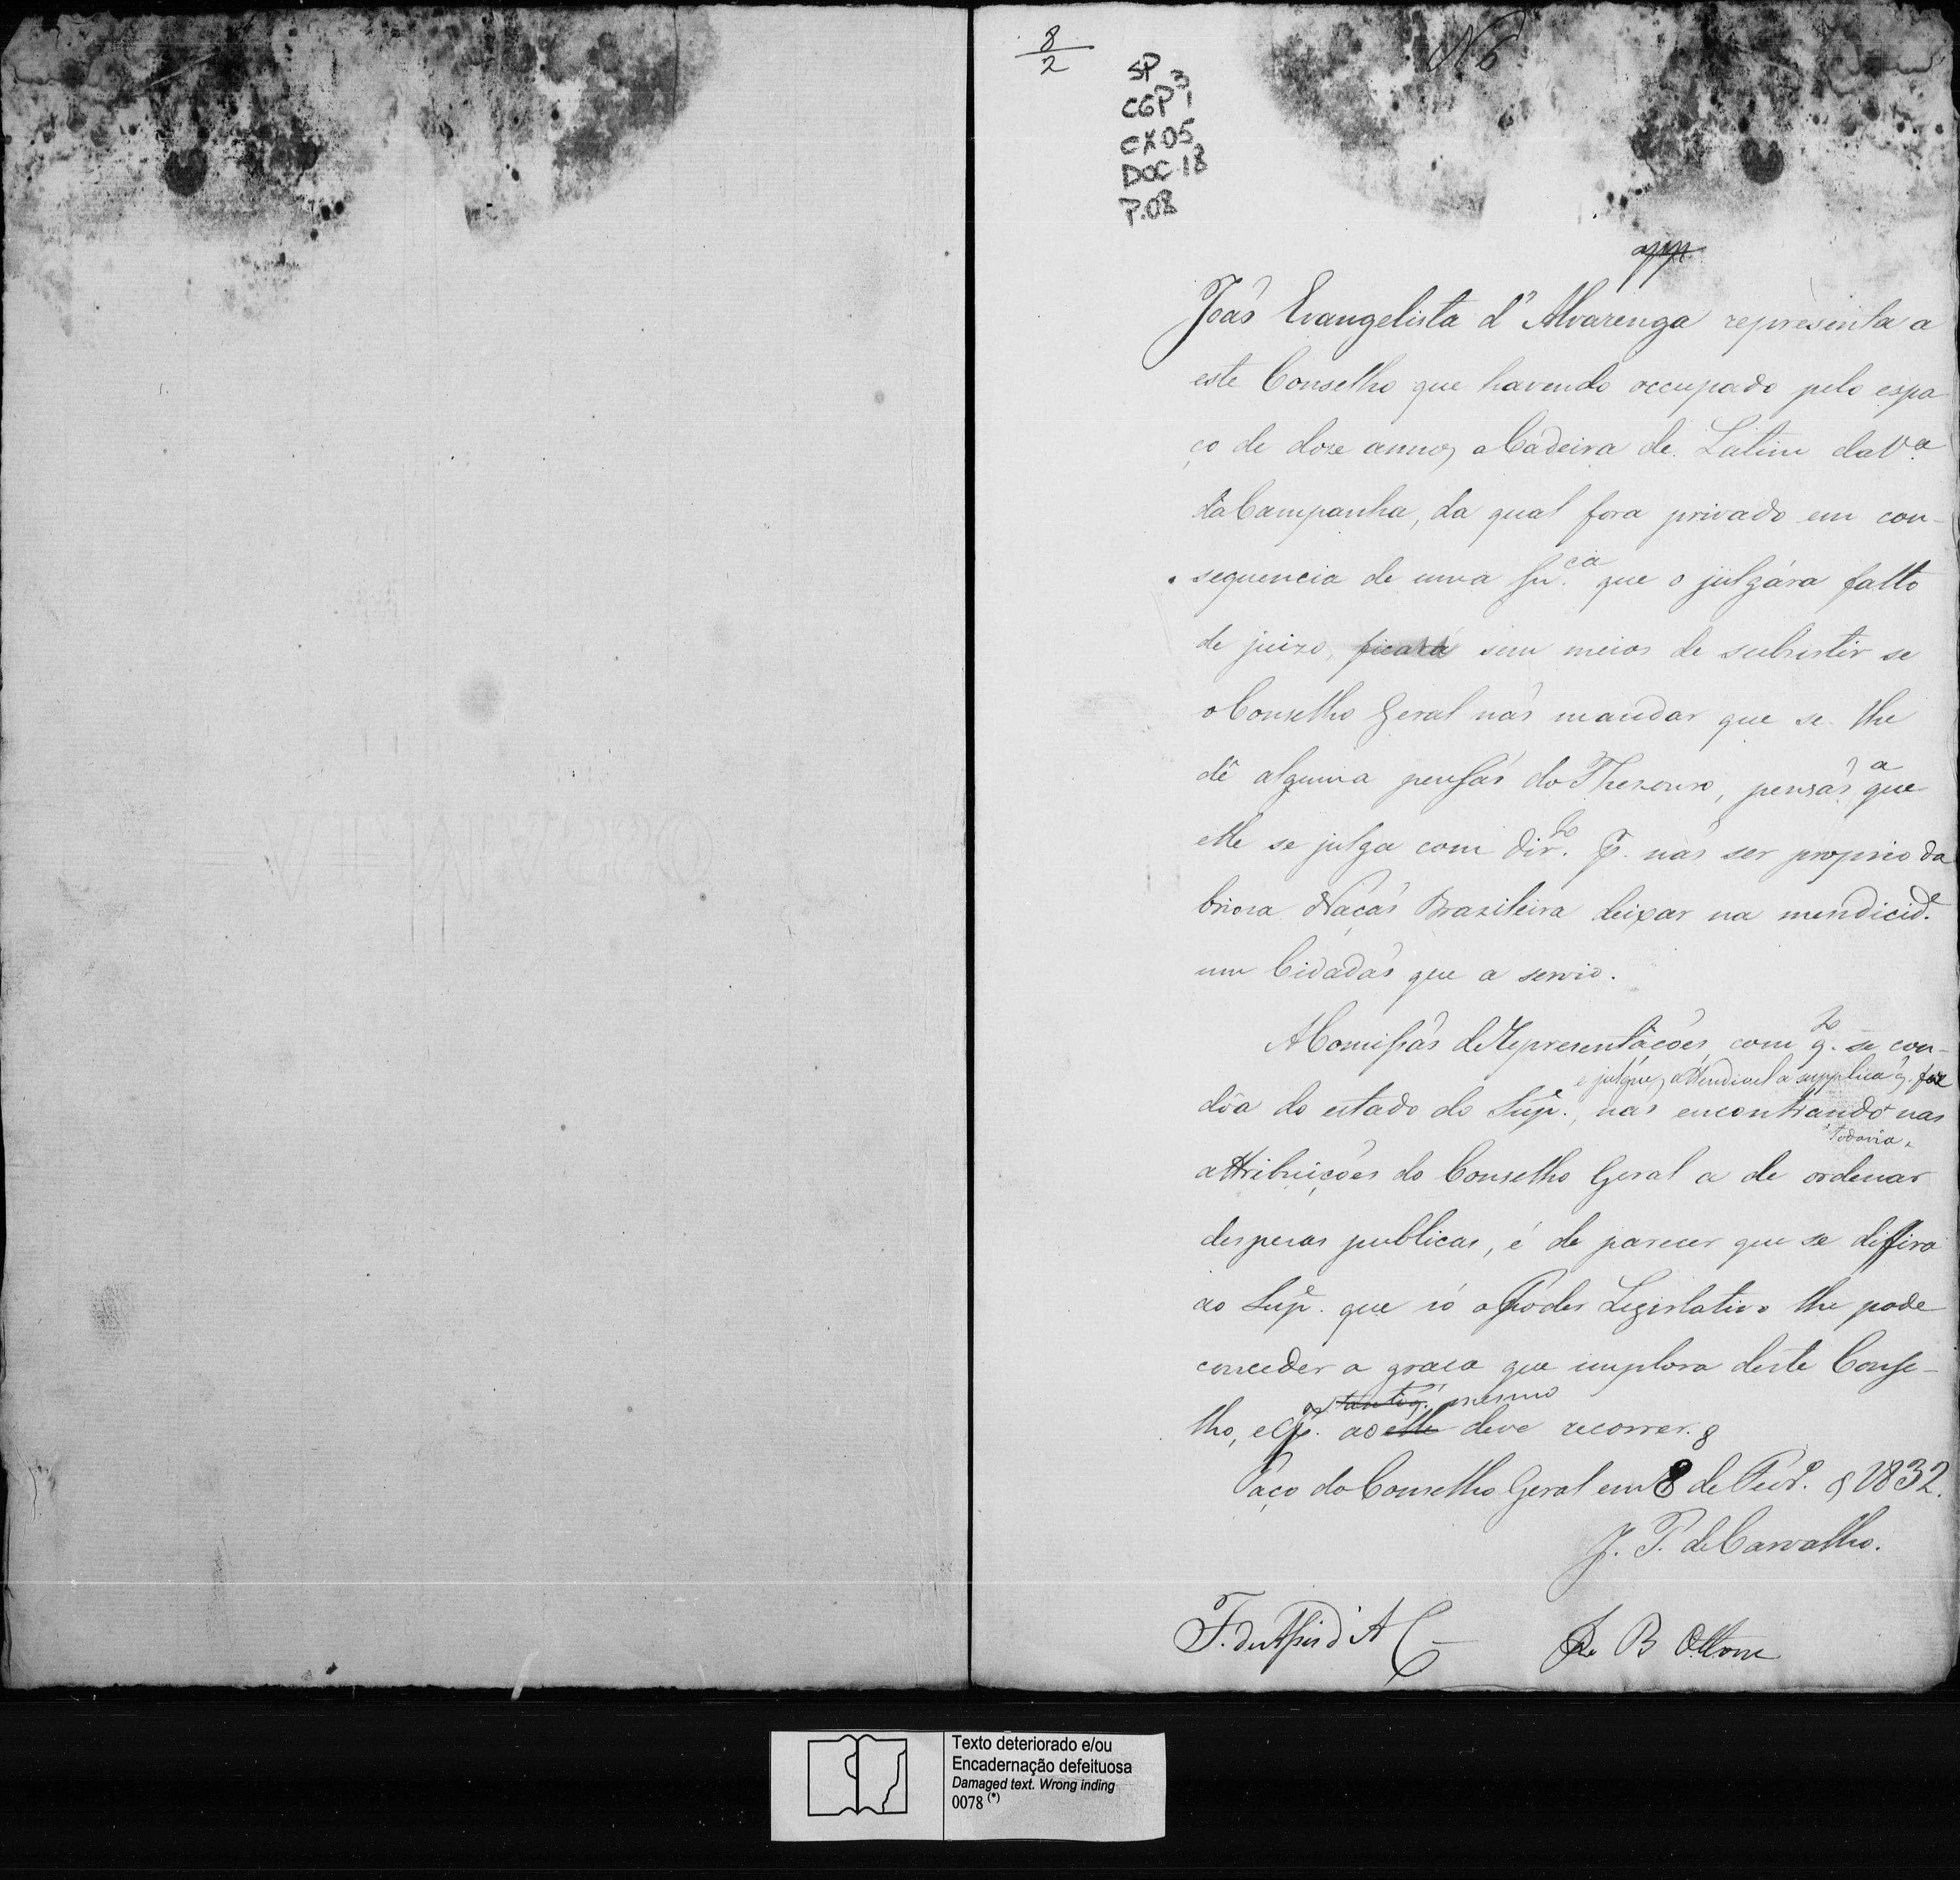 8/2
SP
CGP 3
1
CX 05
DOC 18
P.08
N 6
app
João Evangelista d'Alvarenga representa a
este Conselho que havendo occupado pelo espa
ço de doze annos a Cadeira de Latim da Vª
da Campanha, da qual fora privado em con-
sequencia de uma Snça que o julgára falto
de juizo, ficará sem meios de subsistir se
o Conselho Geral não mandar que se lhe
dê alguma penſão do Thezouro, pensão a que
elle se julga com dirto p. não ser proprio da
brioza Nação Brazileira deixar na mendicide
um Cidadão que a servio.
A Comiſsão de Representações, com qto se con-
e julgue attendivel a supplica q. faz
dôa do estado do Supe., não encontrando nas
todavia
attribuições do Conselho Geral a de ordenar
despezas publicas, é de parecer que se diffira
ao Supe. que só o Poder Legislativo lhe pode
conceder a graça que implora deste Conse-
tanto q. mesmo
lho, e q. ao elle deve recorrer.
Paço do Conselho Geral em 8 de Fevro. d 1832.
J. P. de Carvalho.
F. de Aſsis d'A
B Ottoni
Texto deteriorado e/ou
Encadernação defeituosa
Damaged text. Wrong inding
0078 (*)